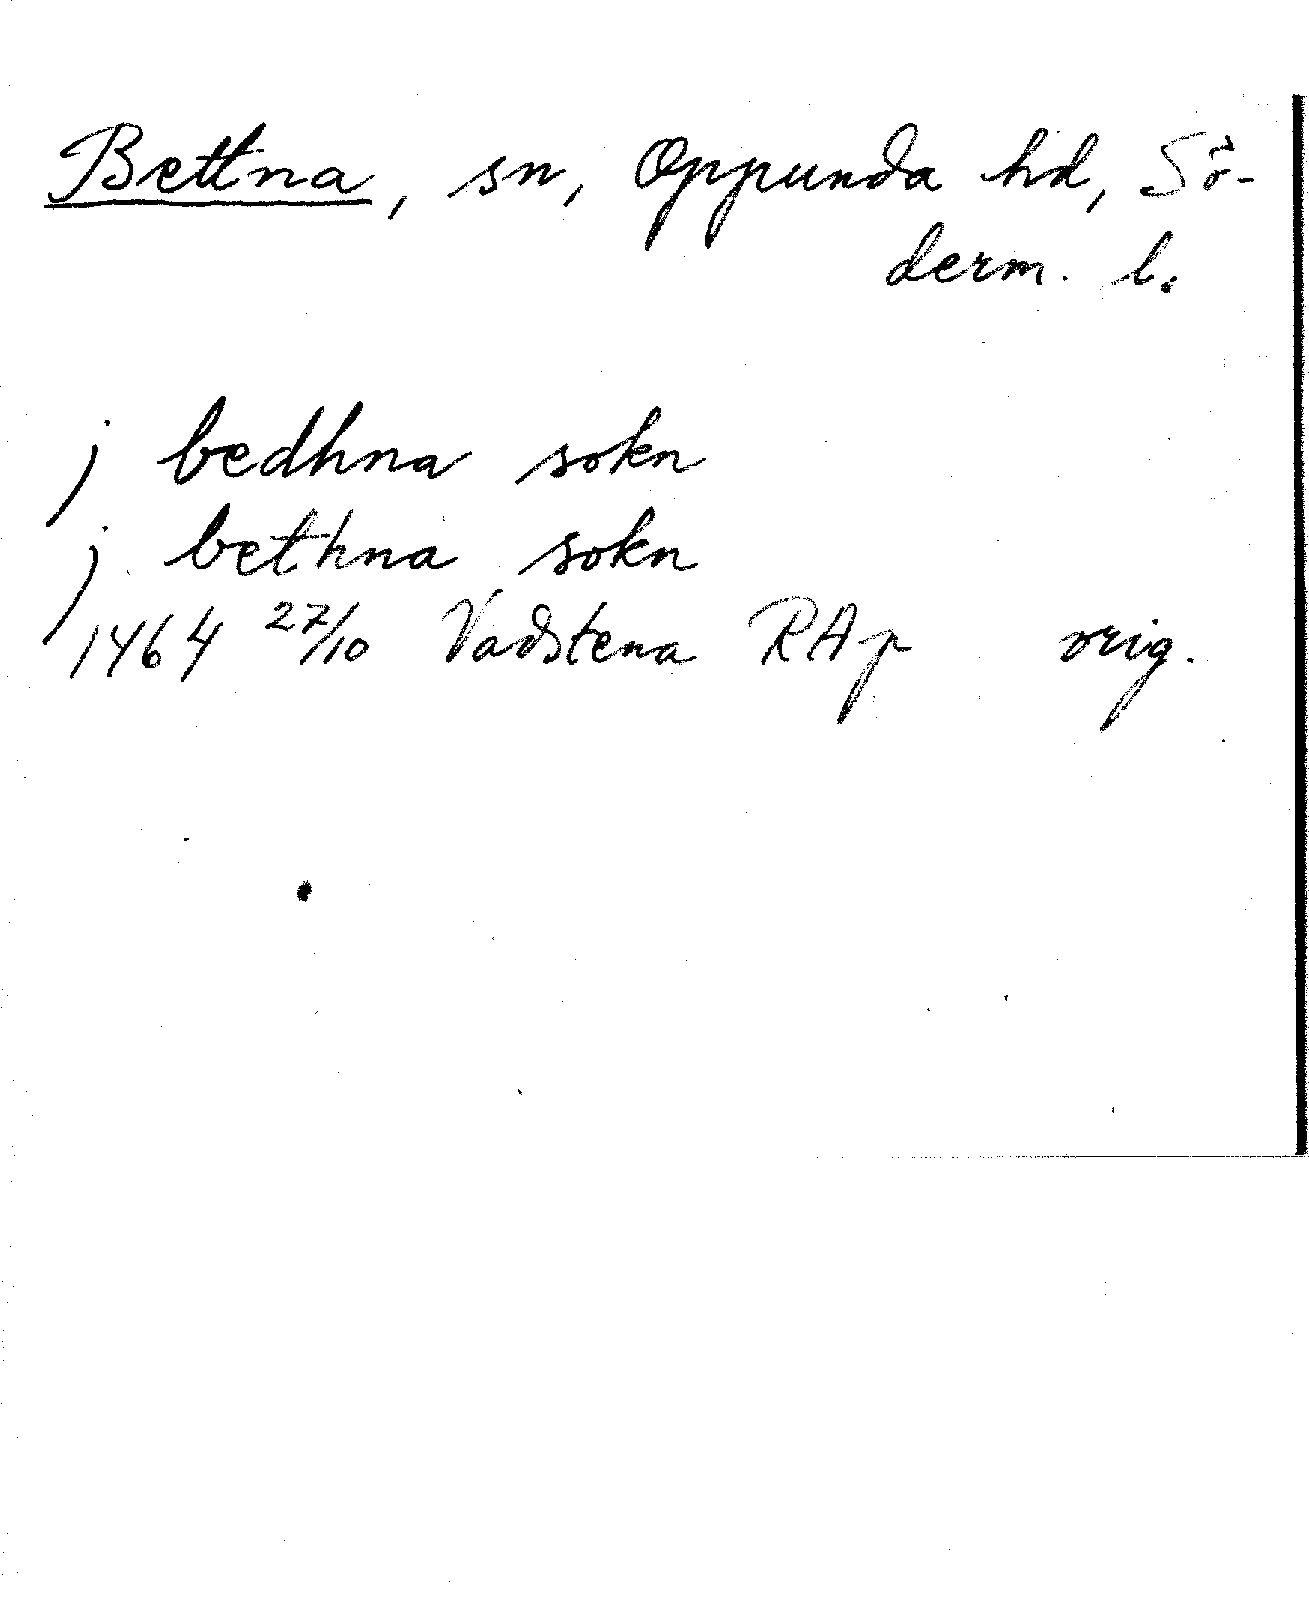 Bettna, sn, Oppunda hd, Sö-
derm. l.
j bedhna sokn
j bethna sokn
1464 27/10 Vadstena RAp orig.